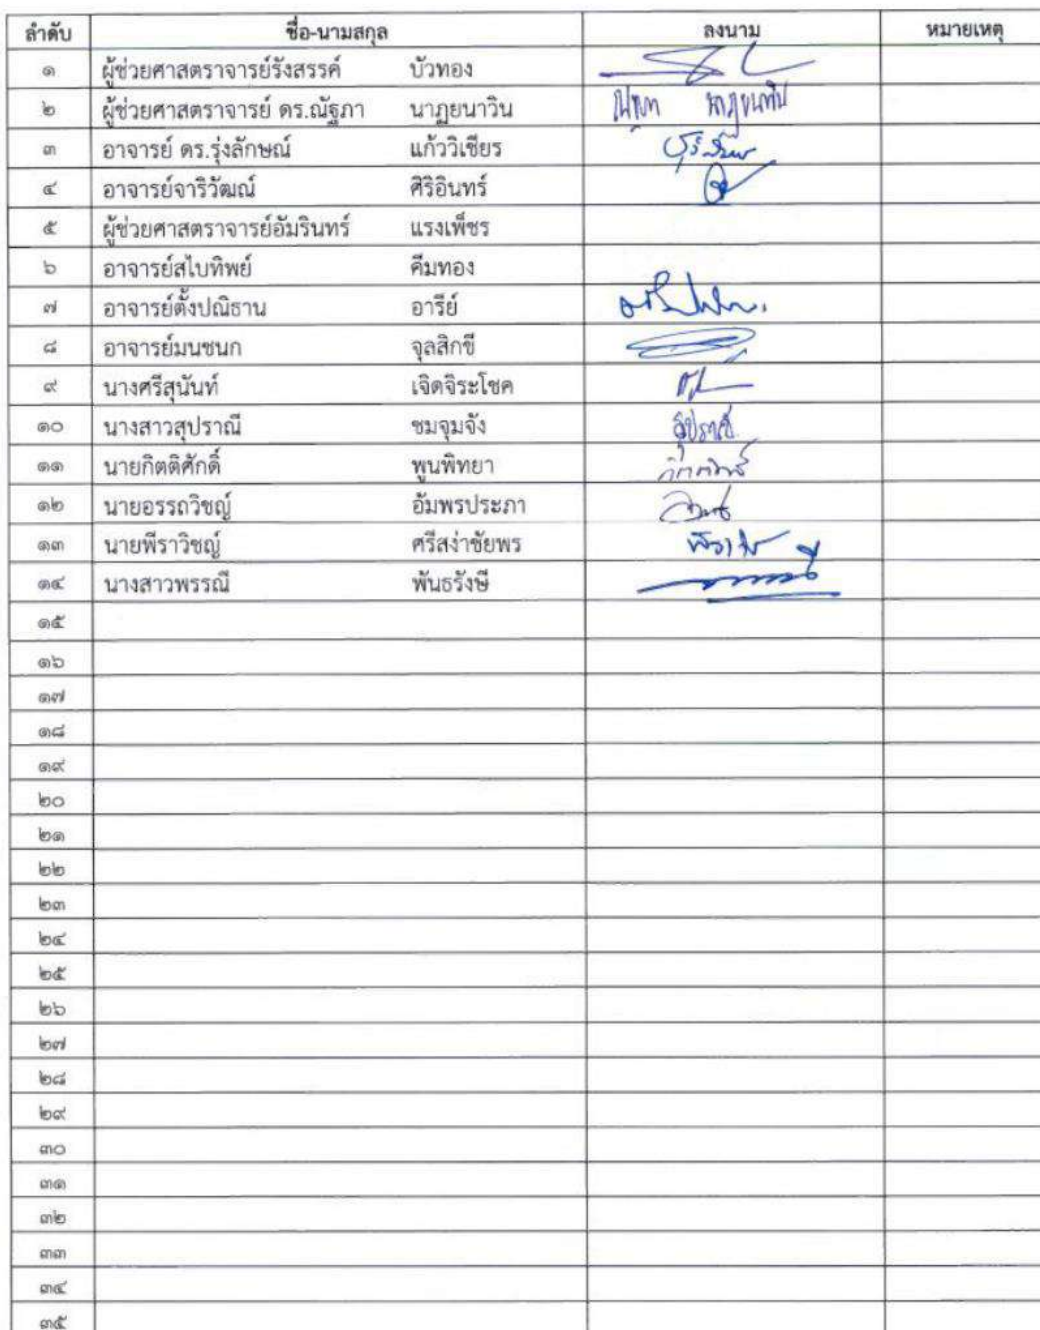 ลำดับ ชื่อ-นามสกุล ลงนาม หมายเหตุ
๑ ผู้ช่วยศาสตราจารย์รังสรรค์ บัวทอง
๒ ผู้ช่วยศาสตราจารย์ ดร.ณัฐภา นาฏยนาวิน ณัฐภา นาฏยนาวิน
๓ อาจารย์ ดร.รุ่งลักษณ์ แก้ววิเชียร
๔ อาจารย์จาริวัฒน์ ศิริอินทร์
๕ ผู้ช่วยศาสตราจารย์อัมรินทร์ แรงเพ็ชร
๖ อาจารย์สไบทิพย์ คีมทอง
๗ อาจารย์ตั้งปณิธาน อารีย์
๘ อาจารย์มนชนก จุลสิกขี
๙ นางศรีสุนันท์ เจิดจิระโชค
๑๐ นางสาวสุปราณี ชมจุมจัง สุปราณี
๑๑ นายกิตติศักดิ์ พูนพิทยา
๑๒ นายอรรถวิชญ์ อัมพรประภา
๑๓ นายพีราวิชญ์ ศรีสง่าชัยพร
๑๔ นางสาวพรรณี พันธรังษี
๑๕
๑๖
๑๗
๑๘
๑๙
๒๐
๒๑
๒๒
๒๓
๒๔
๒๕
๒๖
๒๗
๒๘
๒๙
๓๐
๓๑
๓๒
๓๓
๓๔
๓๕